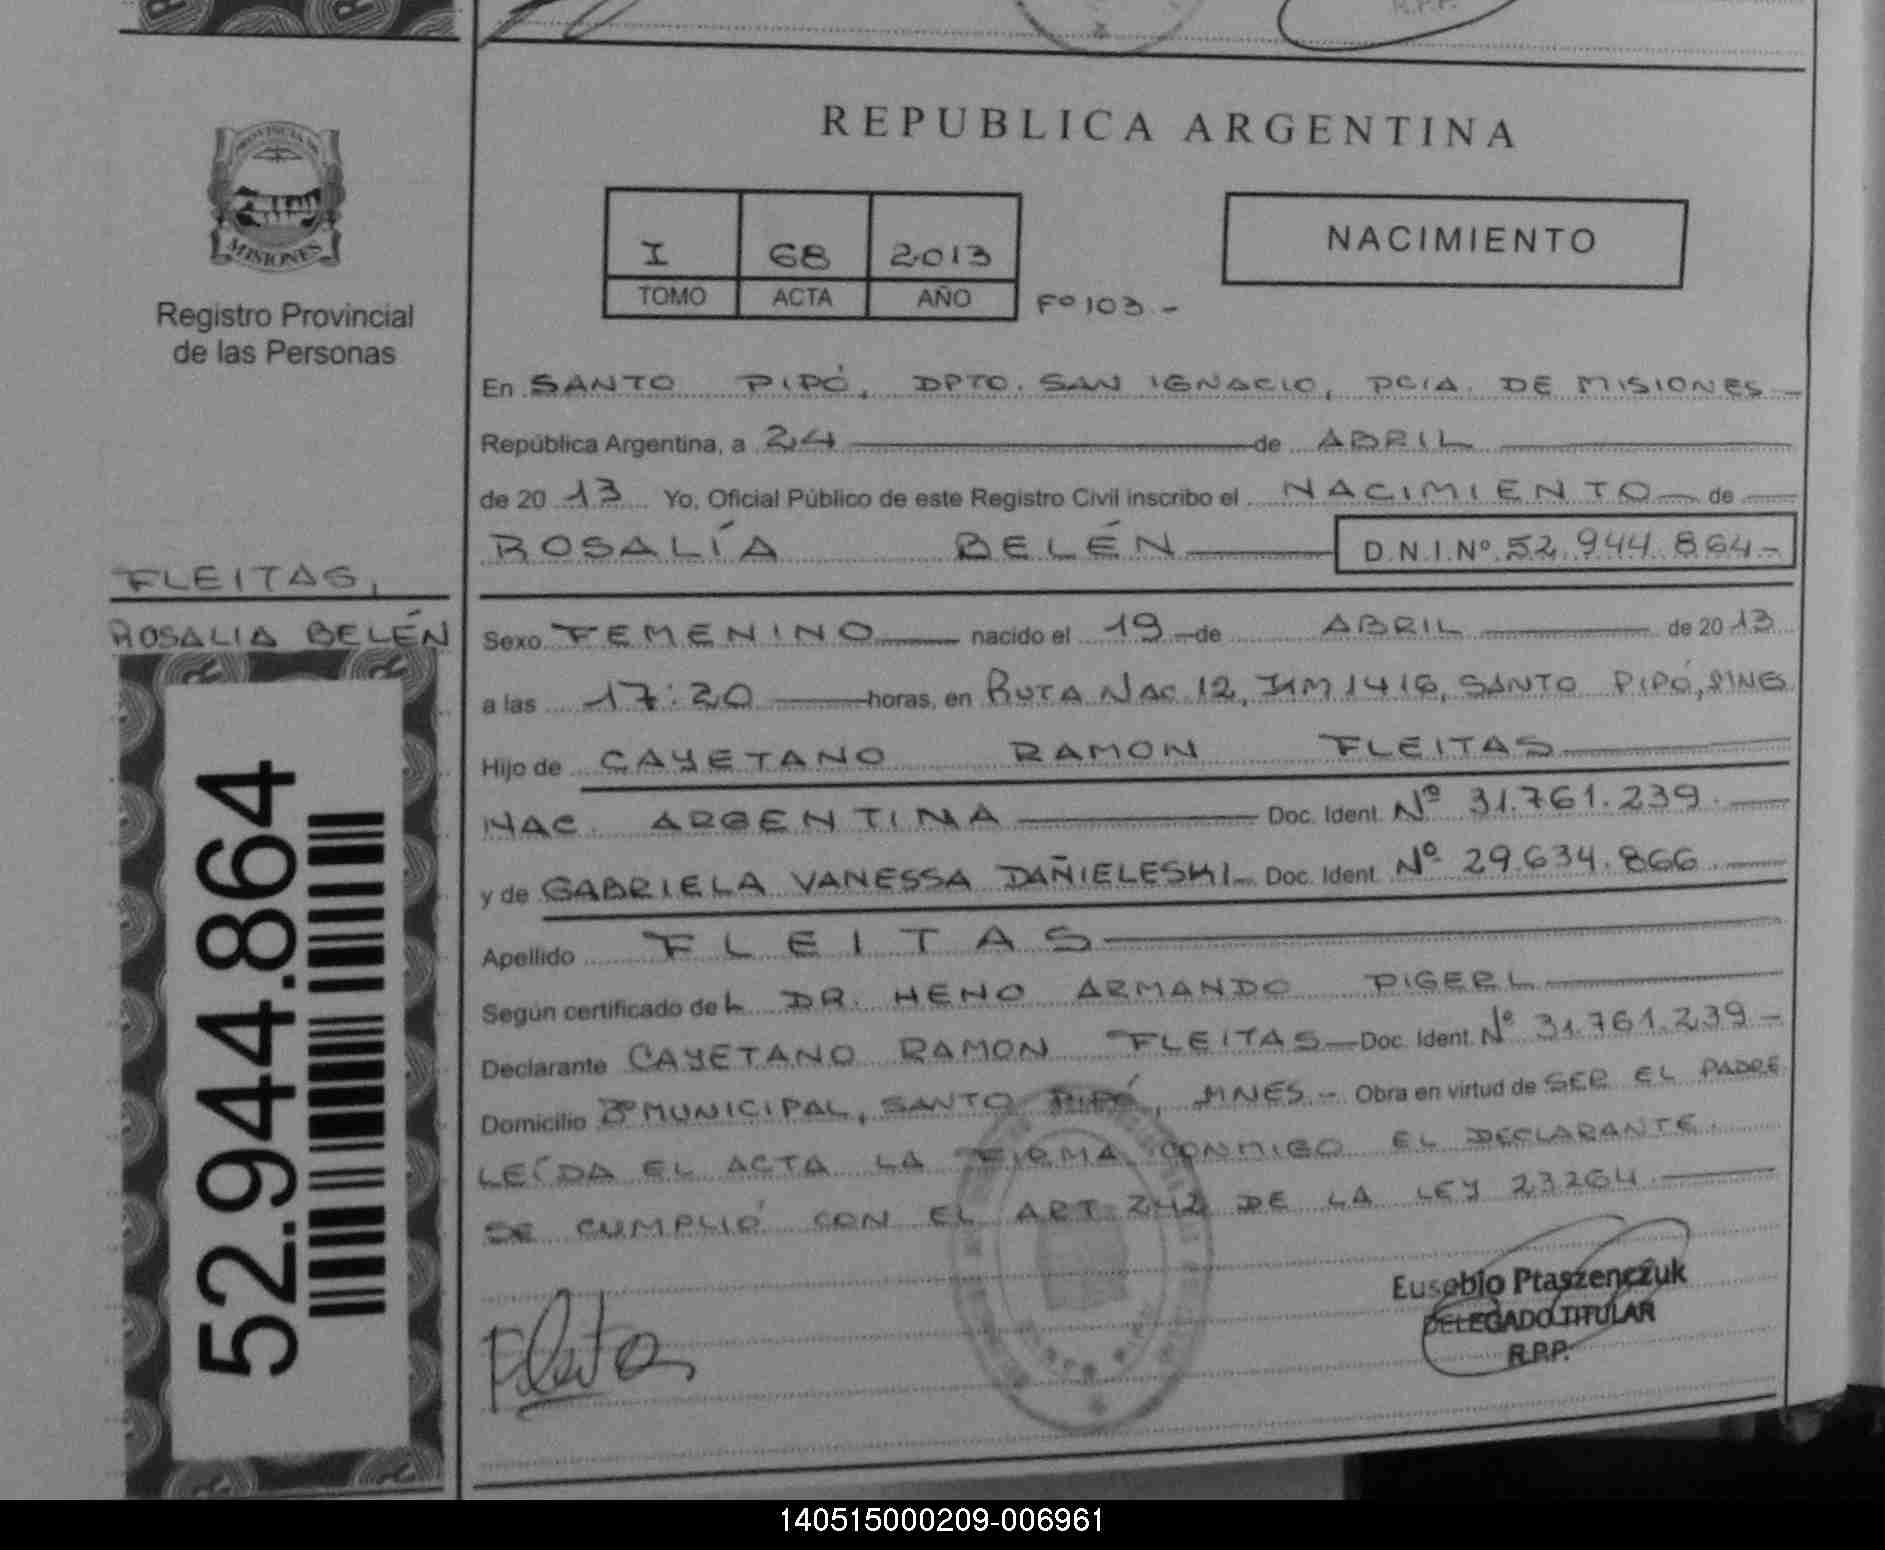 R.P.P.
REPUBLICA ARGENTINA
PROVINCIA DE
MISIONES
Registro Provincial
de las Personas
I 68 2013
TOMO ACTA AÑO
Fº 103.-
NACIMIENTO
En SANTO PIPÓ, DPTO. SAN IGNACIO, PCIA. DE MISIONES
República Argentina, a 24 de ABRIL
de 2013 Yo, Oficial Público de este Registro Civil inscribo el NACIMIENTO de
ROSALÍA BELÉN D.N.I.Nº 52.944.864-
FLEITAS,
ROSALIA BELÉN
52.944.864
Sexo FEMENINO nacido el 19 de ABRIL de 2013
a las 17:20 horas, en RUTA NAC 12, KM 1416, SANTO PIPÓ, MNES
Hijo de CAYETANO RAMON FLEITAS
NAC. ARGENTINA Doc. Ident. Nº 31.761.239.
y de GABRIELA VANESSA DAÑIELESKI Doc. Ident. Nº 29.634.866
Apellido FLEITAS
Según certificado del DR. HENO ARMANDO PIGERL
Declarante CAYETANO RAMON FLEITAS Doc. Ident. Nº 31.761.239-
Domicilio Bº MUNICIPAL, SANTO PIPÓ, MNES.- Obra en virtud de SER EL PADRE
LEÍDA EL ACTA LA FIRMA CONMIGO EL DECLARANTE.
SE CUMPLIÓ CON EL ART 242 DE LA LEY 23264.
Fleitas
Eusebio Ptaszenczuk
DELEGADO TITULAR
R.P.P.
140515000209-006961